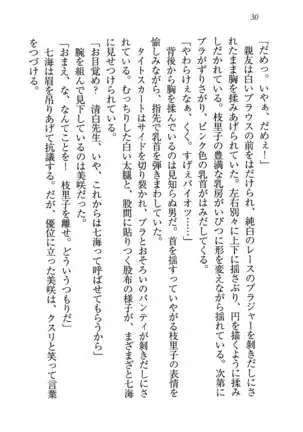 30
「だめっ。いやぁ、だめぇー」
親友は白いブラウスの前をはだけられ、純白のレースのブラジャーを剝きだしにさ
れたまま胸を揉みあげられていた。左右別々に上下に揺さぶり、円を描くように揉み
だかれている。枝里子の豊満な乳房がいびつに形を変えながら揺れている。次第に
ブラがずりさがり、ピンク色の乳首がはみだしてくる。
「やわらけぇなぁ。くくっ。すげぇパイオツ……」
背後から胸を揉んでいるのは見知らぬ男だ。首を揺すっていやがる枝里子の表情を
愉しみながら、指先で乳首を弾きまわしている。
タイトスカートはサイドを切り裂かれ、ブラとおそろいのパンティが剝きだしにさ
せられている。むっちりした白い太腿と、股間に貼りつく股布の様子が、まざまざと七海
に見せつけられている。
「お目覚め？　清白先生、いや、これからは七海って呼ばせてもらうから」
腕を組んで見下しているのは美咲だった。
「おまえ、な、なんてことを！　枝里子を離せ。どういうつもりだ」
七海は眉を吊りあげて抗議する。だが、優位に立った美咲は、クスリと笑って言葉
をつづける。